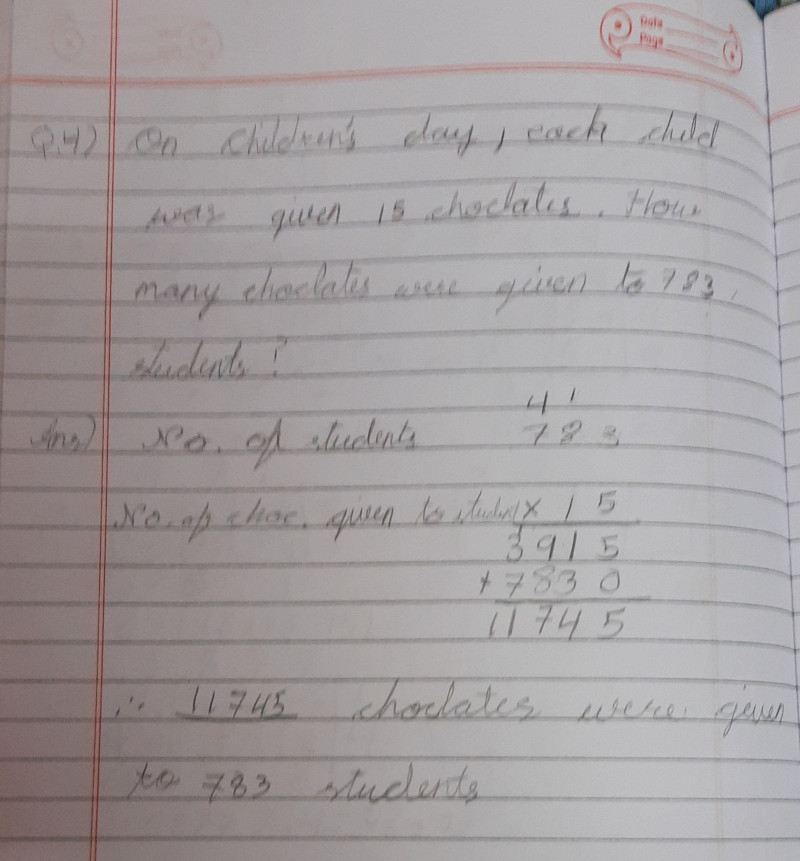 Date
Page
Q.4) On Children's day, each child
was given 15 choclates. How
many choclates were given to 783
students?
4 1
Ans) No. of students 783
No. of choc. given to student × 15
3915
+ 7830
11745
∴ 11745 choclates were given
to 783 students